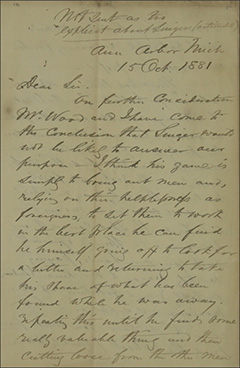 Not sent as too
explicit about Singer
Ann Arbor Mich
15 Oct. 1881
Dear Sir.
On further Consideration
Mr. Wood and I have come to
the Conclusion that Singer would
not be likely to answer our
purpose - I think his game is
simply to bring out men and,
relying on their helplessness as
foreigners, to set them to work
in the best place he can find
he himself going off to look for
a better and returning to take
his share of what has been
found while he was away.
repeating this until he finds some
really valuable thing and then
cutting loose from the other men